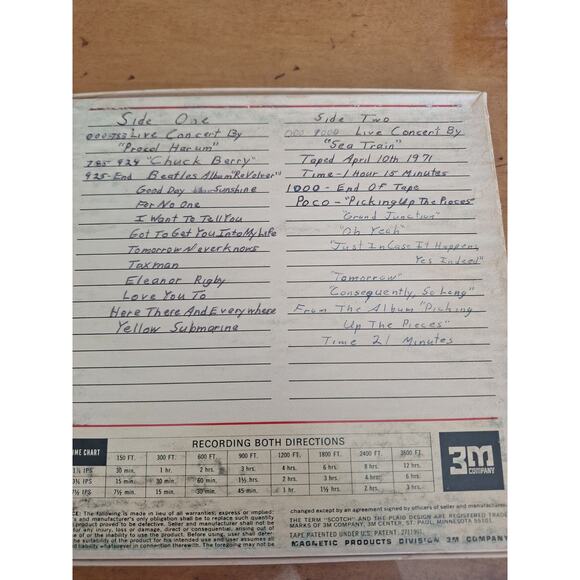 Side One
000-783 Live Concert By
"Procol Harum"
785-924 "Chuck Berry"
925-End Beatles Album "Revolver"
Good Day Sunshine
For No One
I Want To Tell You
Got To Get You Into My Life
Tomorrow Never Knows
Taxman
Eleanor Rigby
Love You To
Here There And Everywhere
Yellow Submarine
Side Two
000 9000 Live Concert By
"Sea Train"
Taped April 10th 1971
Time-1 Hour 15 Minutes
1000-End Of Tape
Poco-"Picking Up The Pieces"
"Grand Junction"
"Oh Yeah"
"Just In Case It Happens,
Yes Indeed"
"Tomorrow"
"Consequently, So Long"
From The Album "Picking
Up The Pieces"
Time 21 Minutes
RECORDING BOTH DIRECTIONS
CHART 150 FT. 300 FT. 600 FT. 900 FT. 1200 FT. 1800 FT. 2400 FT. 3600 FT.
IPS 30 min. 1 hr. 2 hrs. 3 hrs. 4 hrs. 6 hrs. 8 hrs. 12 hrs.
IPS 15 min. 30 min. 60 min. 1½ hrs. 2 hrs. 3 hrs. 4 hrs. 6 hrs.
IPS 7½ min. 15 min. 30 min. 45 min. 1 hr. 1½ hrs. 2 hrs. 3 hrs.
3M
COMPANY
The following is made in lieu of all warranties, express or implied:
s and manufacturer's only obligation shall be to replace such quantity
product proved to be defective. Seller and manufacturer shall not be
for any injury, loss or damage, direct or consequential, arising out of
e of or the inability to use the product. Before using, user shall deter-
the suitability of the product for his intended use and user assumes all
d liability whatsoever in connection therewith. The foregoing may not be
changed except by an agreement signed by officers of seller and manufacturer.
THE TERM "SCOTCH" AND THE PLAID DESIGN ARE REGISTERED TRADE
MARKS OF 3M COMPANY, 3M CENTER, ST. PAUL, MINNESOTA 55101.
TAPE PATENTED UNDER U.S. PATENT
MAGNETIC PRODUCTS DIVISION 3M COMPANY